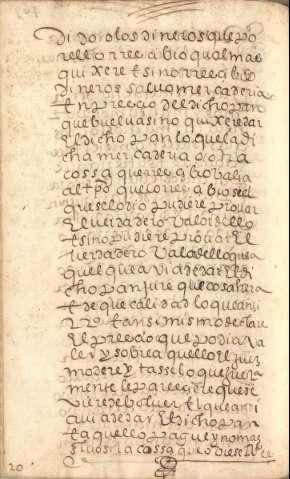 di do o los dineros que po
rello rreçabio qual mas
quixere E si no rreçibio
dineros salvo mercaderia
En preçio del dicho pan
que buelva si no quixere dar
El dicho pan lo que la di
cha mercaderia o otra
cossa que rreçibio valia
al tpo que lo rreçibio si el
que se lo dio pudiere provar
El verdadero valor dello
E si no pudiere provar El
verdadero valor dello que a
quel que avia de dar El di
cho pan jure que cosa hera
E de que calidad lo que ansi
E ansi mismo declare
El preçio que podia va
ler y sobre aquello El juez
modere y tasse lo que
mente le pareçiere que se
viere de bolver El que ansi
avia de dar El dicho pan
E aquello pague y no mas
la cossa que
20